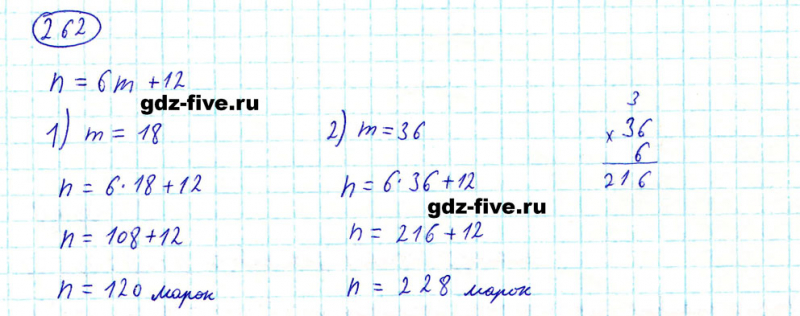 262
n = 6m + 12
gdz-five.ru
1) m = 18
n = 6·18 + 12
n = 108 + 12
n = 120 марок
2) m = 36
n = 6·36 + 12
gdz-five.ru
n = 216 + 12
n = 228 марок
3
× 36
6
216